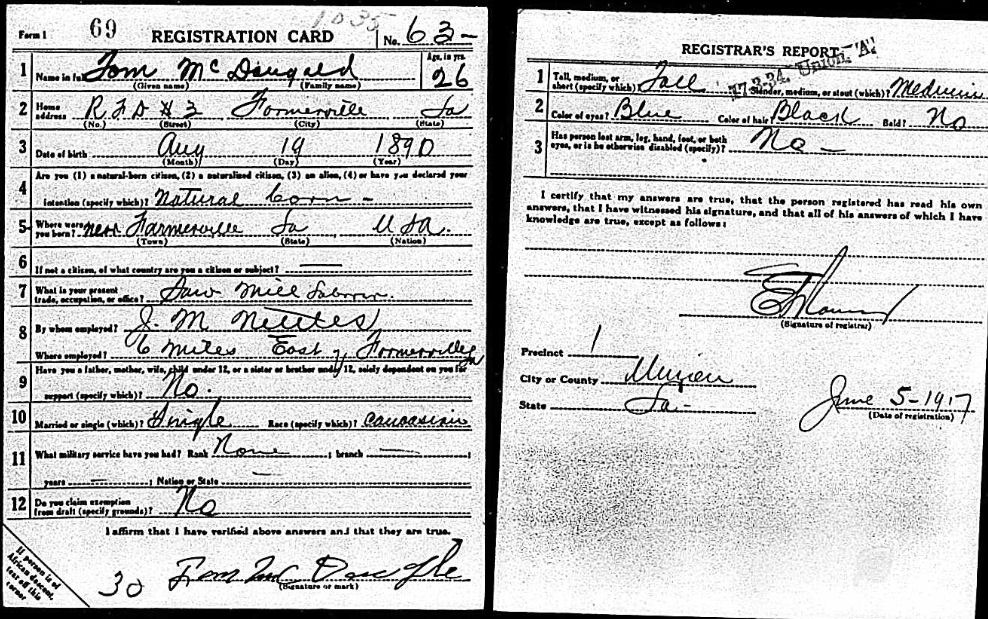 1035
Form 1 69 REGISTRATION CARD No. 63-
1 Name in full Tom McDougald Age, in yrs. 26
(Given name) (Family name)
2 Home address R.F.D #3 Formerville La
(No.) (Street) (City) (State)
3 Date of birth Aug 19 1890
(Month) (Day) (Year)
4 Are you (1) a natural-born citizen, (2) a naturalized citizen, (3) an alien, (4) or have you declared your
intention (specify which)? Natural born -
5 Where were you born? near Farmerville La U S A.
(Town) (State) (Nation)
6 If not a citizen, of what country are you a citizen or subject?
7 What is your present trade, occupation, or office? Saw Mill Laborer.
8 By whom employed? J. M Nettles
Where employed? 6 miles East of Formerville La
9 Have you a father, mother, wife, child under 12, or a sister or brother under 12, solely dependent on you for
support (specify which)? No.
10 Married or single (which)? Single Race (specify which)? Caucasian
11 What military service have you had? Rank None ; branch ;
years ; Nation or State
12 Do you claim exemption from draft (specify grounds)? No
I affirm that I have verified above answers and that they are true.
(Signature or mark)
If person is of
African descent,
tear off this
corner.
30
REGISTRAR'S REPORT
17-3-34. Union, "A"
1 Tall, medium, or short (specify which)? Tall Slender, medium, or stout (which)? Medium
2 Color of eyes? Blue Color of hair? Black Bald? No
3 Has person lost arm, leg, hand, foot, or both
eyes, or is he otherwise disabled (specify)? No -
I certify that my answers are true, that the person registered has read his own
answers, that I have witnessed his signature, and that all of his answers of which I have
knowledge are true, except as follows:
(Signature of registrar)
Precinct 1
City or County Union
State La- June 5-1917
(Date of registration)